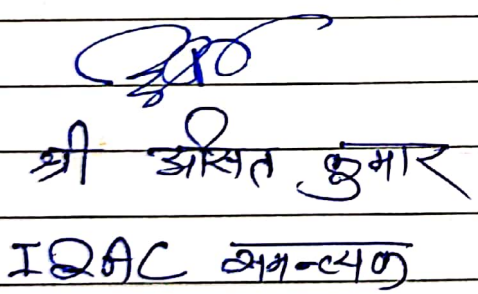 श्री असित कुमार
IQAC समन्वयक